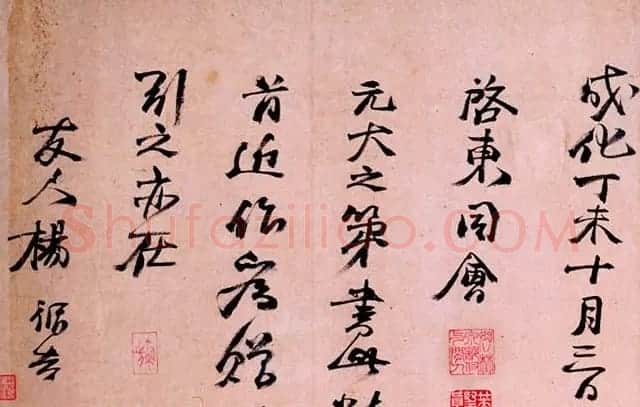 成化丁未十月三日
啓東同會
元大之第書此數
首近作為贈
引之亦在
友人楊
Shufaziliao.COM